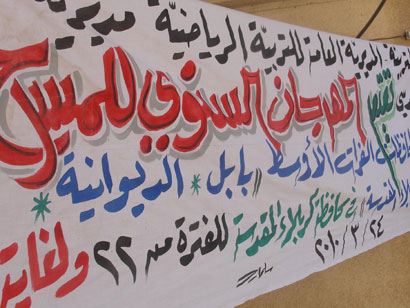 التربية المديرية العامة للتربية الرياضية مديرية
تقيم المهرجان السنوي للمسرح
الفرات الأوسط (( بابل * الديوانية *
المقدسة )) في محافظة كربلاء المقدسة للفترة من ٢٢ ولغاية
٢٤ / ٣ / ٢٠١٠